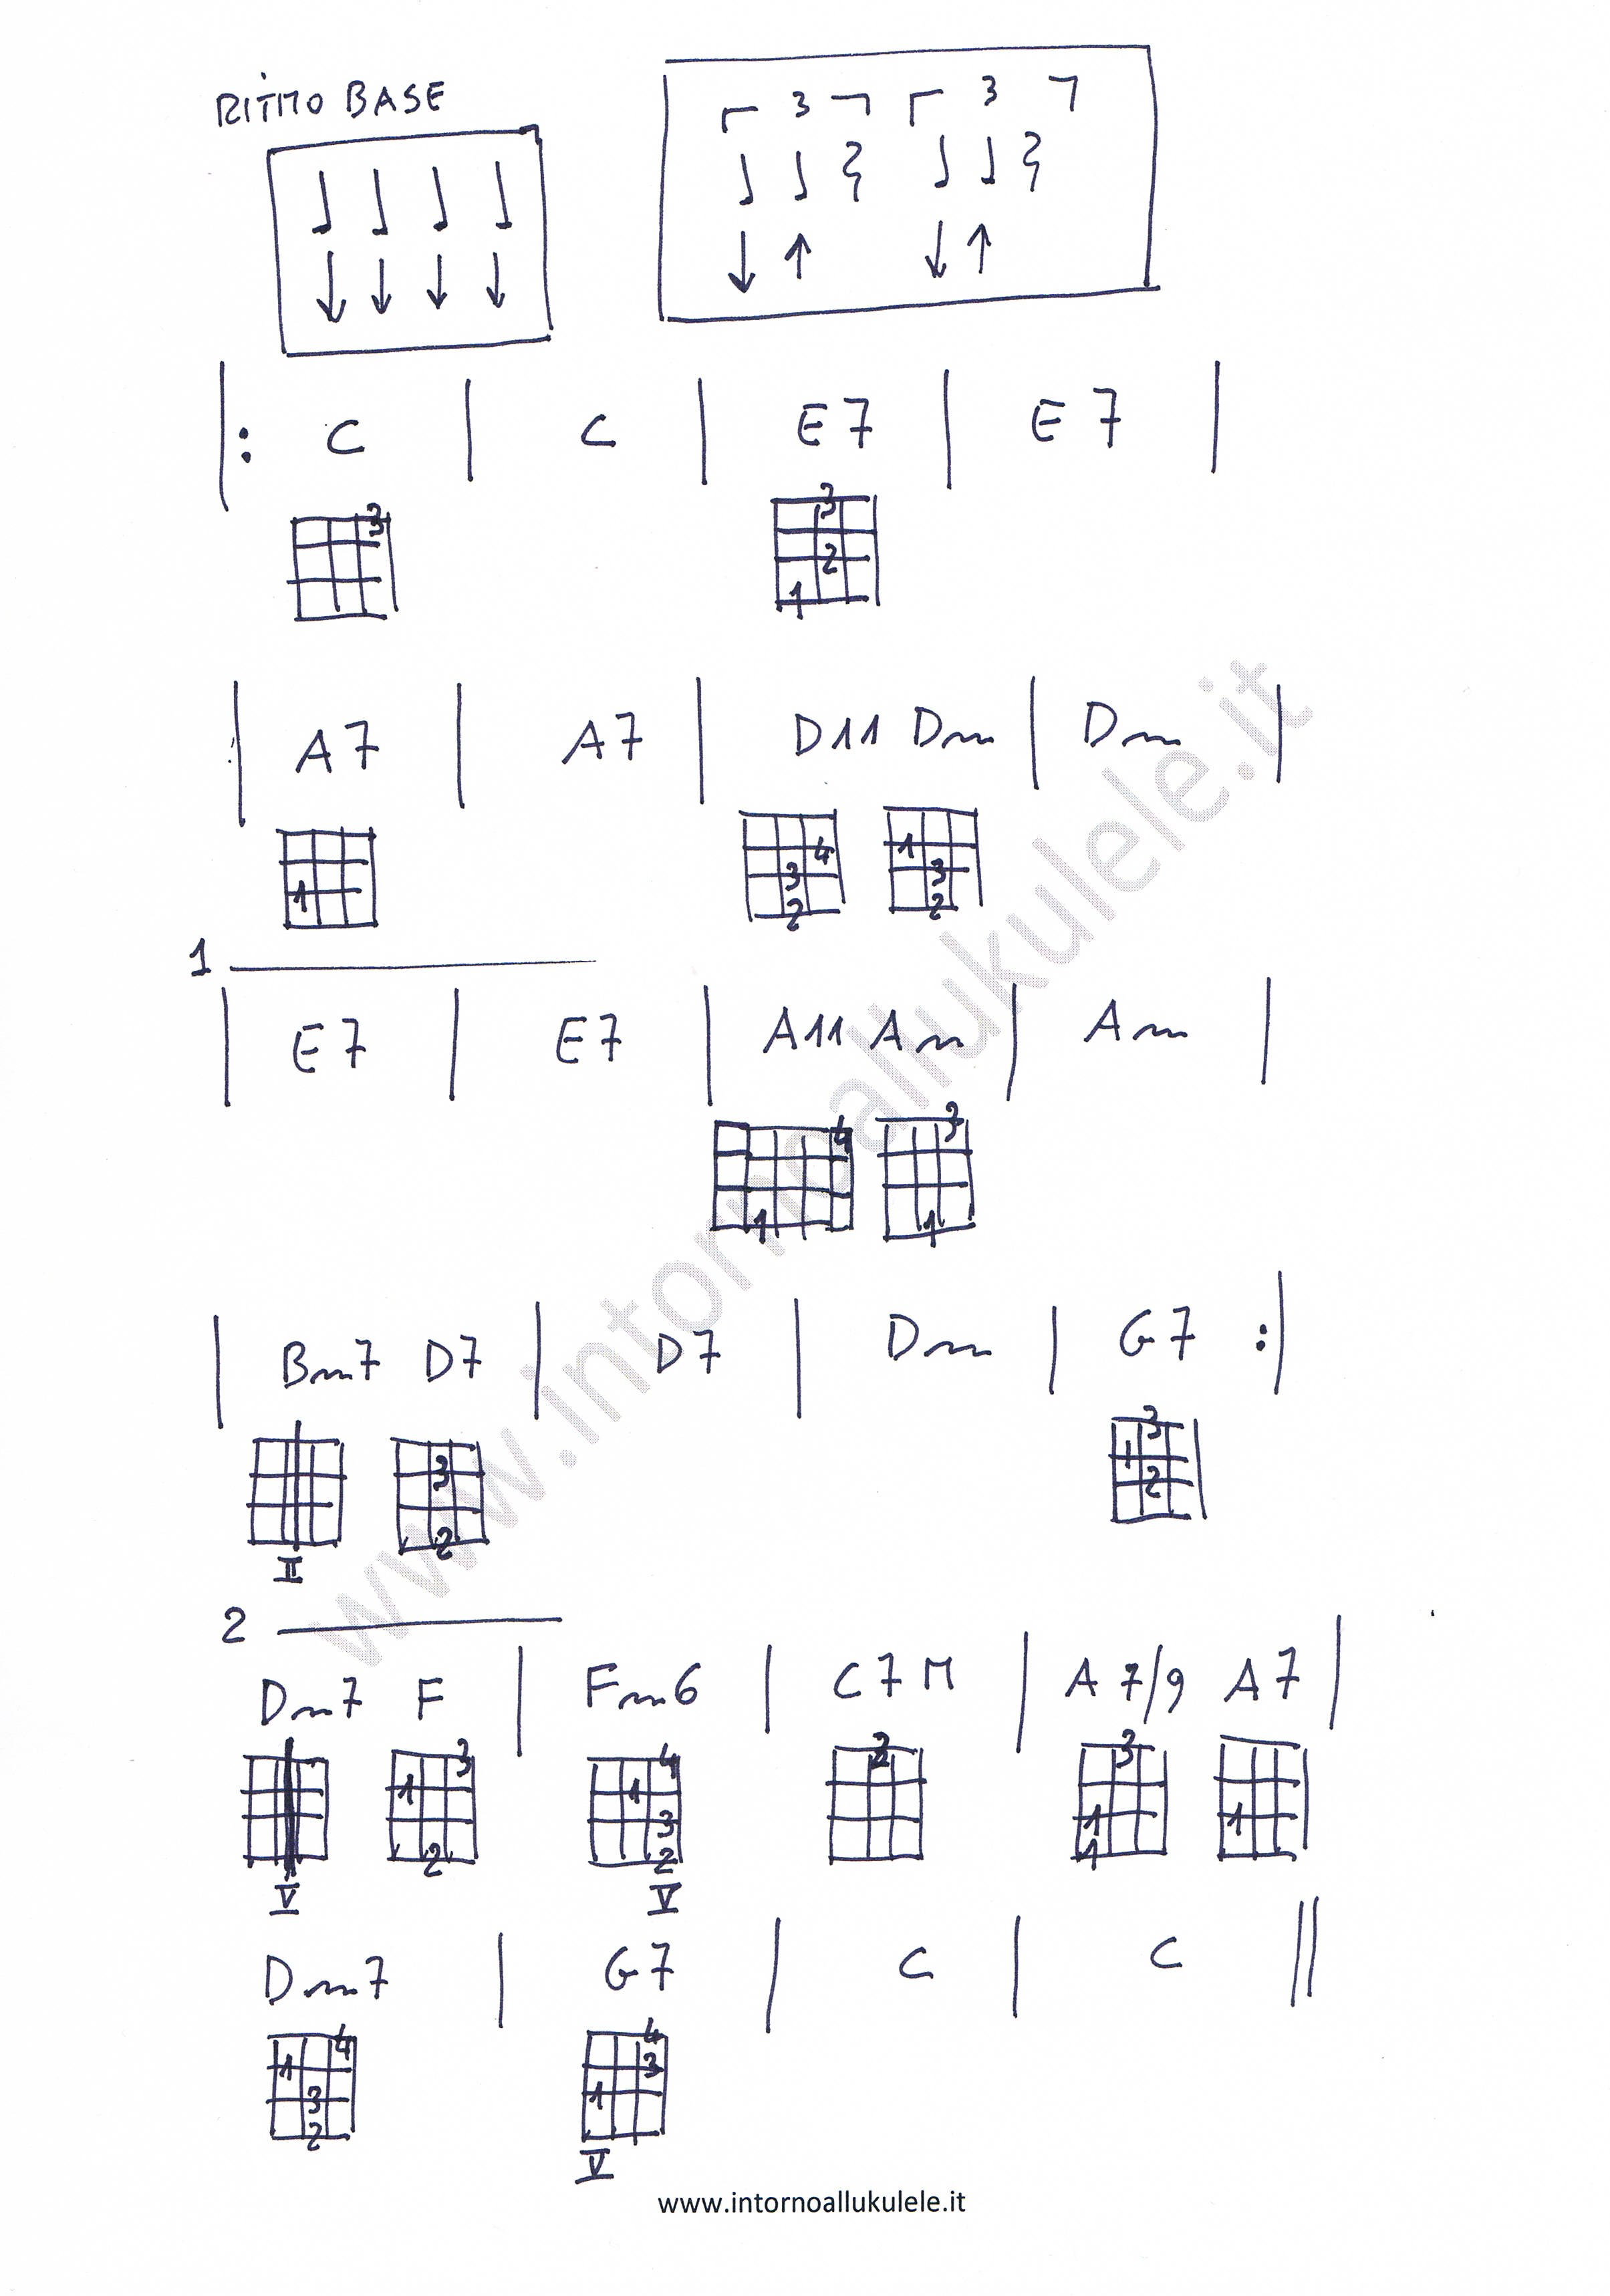 RITMO BASE
3 3
|: C | C | E7 | E7 |
3 3
2
1
| A7 | A7 | D11 Dm | Dm |
4 1
1 3 3
2 2
1
| E7 | E7 | A11 Am | Am |
4 3
1 1
| Bm7 D7 | D7 | Dm | G7 :|
3
3 1
2
2
II
2
Dm7 F | Fm6 | C7M | A7/9 A7 |
3 4 2 3
1 1
3 1 1
2 2 1
V V
Dm7 | G7 | C | C ||
4 4
1 3
3 1
2
V
www.intornoallukulele.it
www.intornoallukulele.it